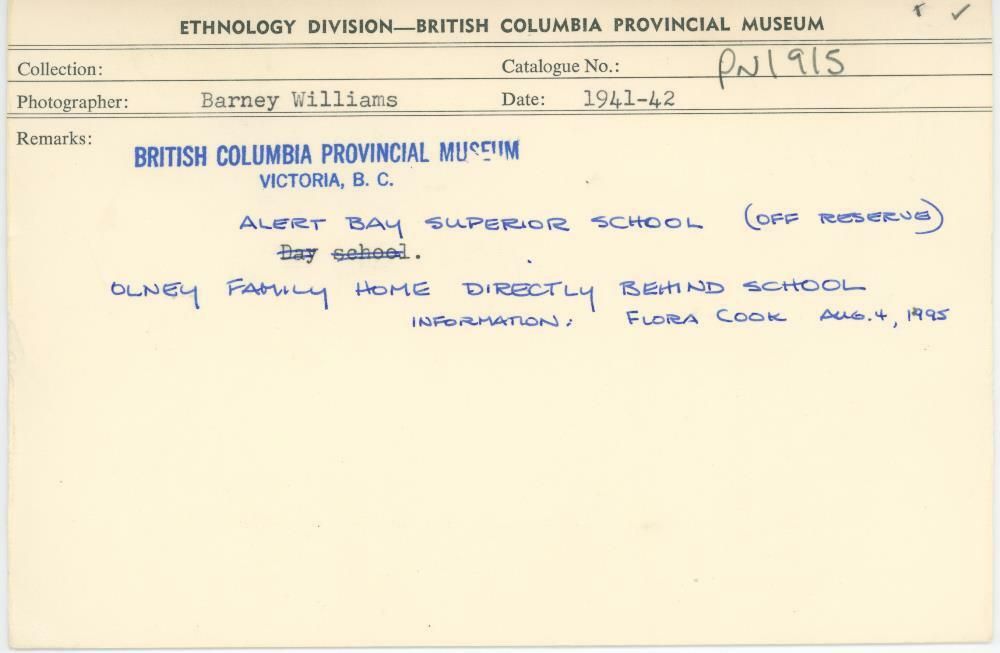 ETHNOLOGY DIVISION—BRITISH COLUMBIA PROVINCIAL MUSEUM
Collection: Catalogue No.: PN1915
Photographer: Barney Williams Date: 1941-42
Remarks:
BRITISH COLUMBIA PROVINCIAL MUSEUM
VICTORIA, B. C.
ALERT BAY SUPERIOR SCHOOL (OFF RESERVE)
Day school.
OLNEY FAMILY HOME DIRECTLY BEHIND SCHOOL
INFORMATION: FLORA COOK AUG. 4, 1995